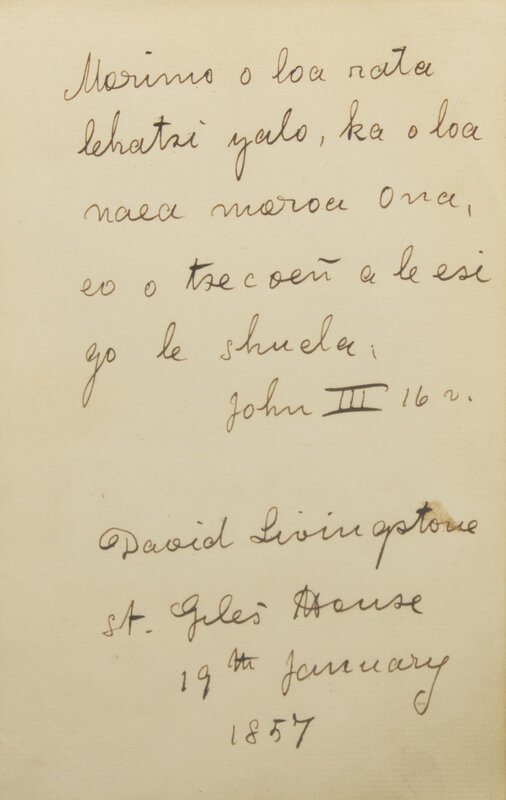 Morimo o loa rata
lehatsi yalo, ka o loa
naea moroa ona,
eo o tsecoeñ a le esi
go le shuela;
John III 16 v.
David Livingstone
St. Giles House
19th January
1857